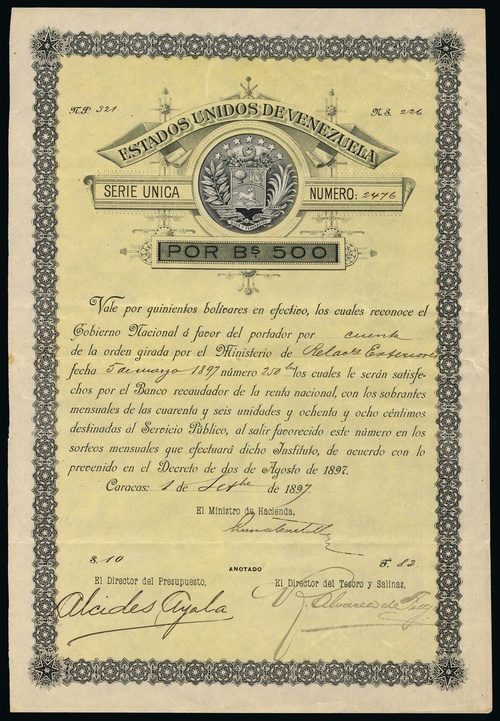 N.P. 321 N.S. 226
ESTADOS UNIDOS DE VENEZUELA
SERIE UNICA NUMERO: 2476
POR Bs 500
Vale por quinientos bolívares en efectivo, los cuales reconoce el
Gobierno Nacional á favor del portador por cuenta
de la orden girada por el Ministerio de Relacs Exteriores
fecha 5 de mayo 1897 número 250 los cuales le serán satisfe-
chos por el Banco recaudador de la renta nacional, con los sobrantes
mensuales de las cuarenta y seis unidades y ochenta y ocho céntimos
destinadas al Servicio Público, al salir favorecido este número en los
sorteos mensuales que efectuará dicho Instituto, de acuerdo con lo
prevenido en el Decreto de dos de Agosto de 1897.
Caracas: 1 de Setbe de 1897
El Ministro de Hacienda,
S. 10 ANOTADO F. 82
El Director del Presupuesto, El Director del Tesoro y Salinas,
Alcides Ayala Alvarez de